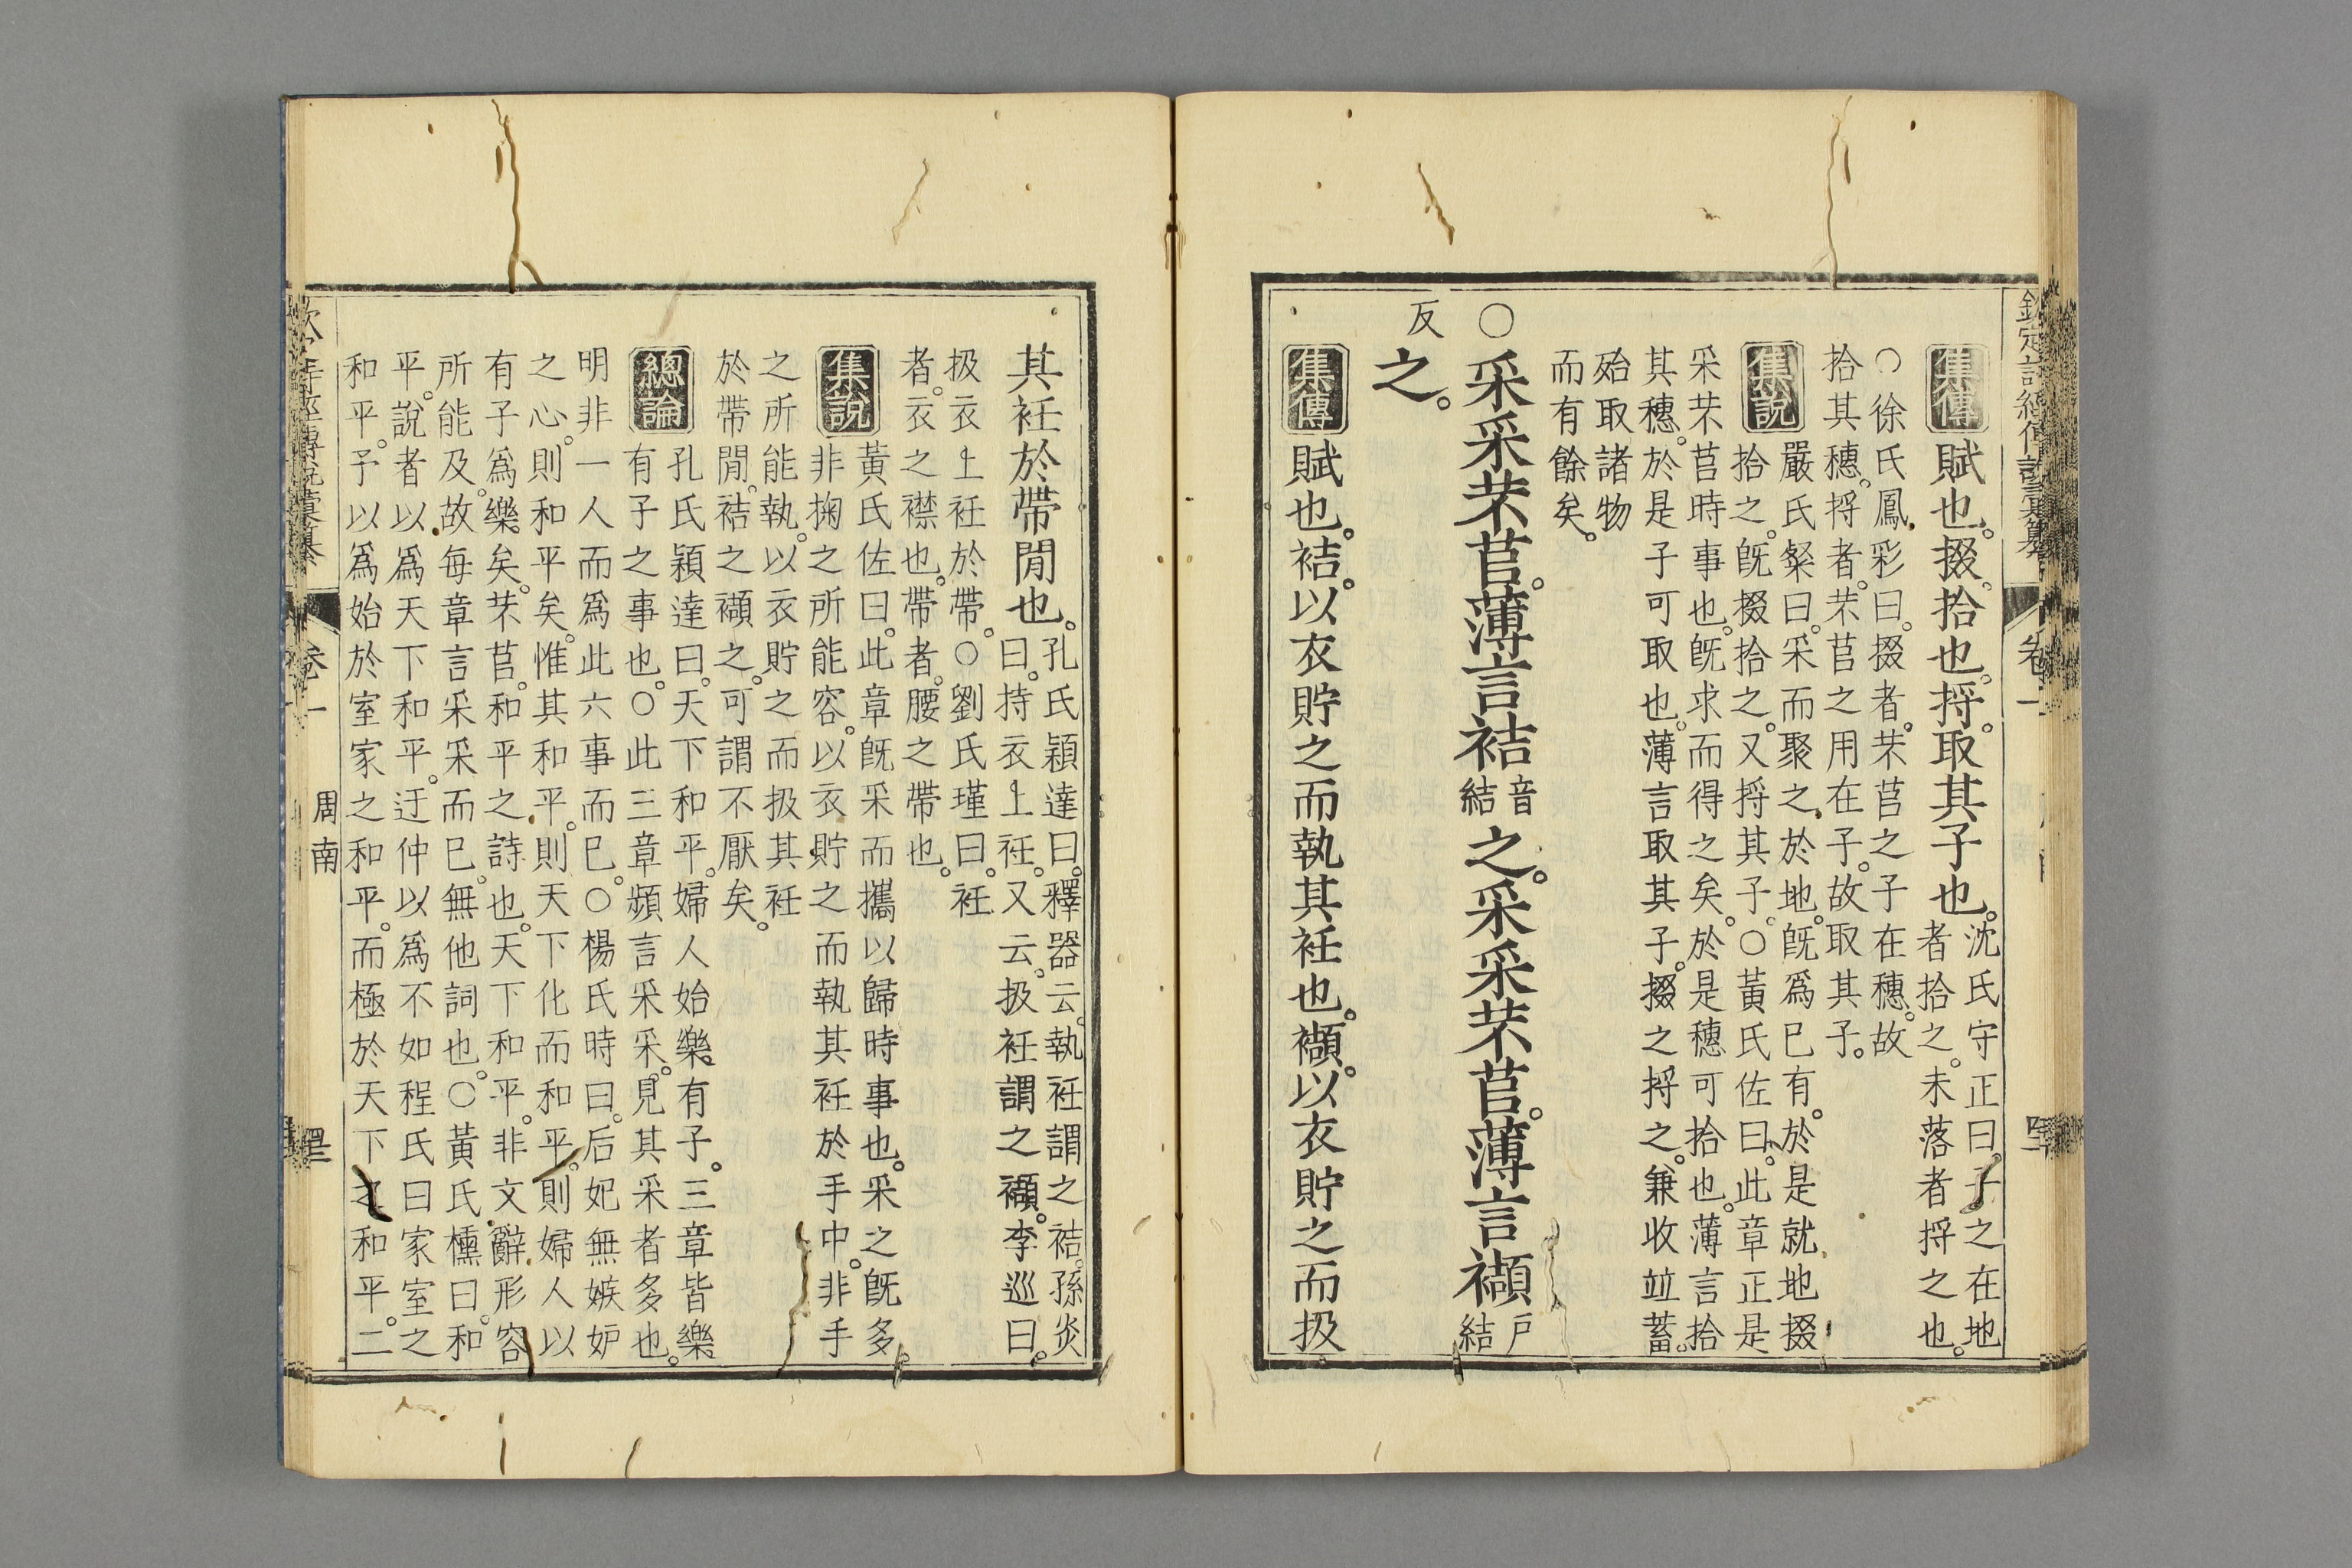 欽定詩經傳說彙纂 卷一
集傳 賦也。掇。拾也。捋。取其子也。沈氏守正曰。子之在地
者拾之。未落者捋之也。
○徐氏鳳彩曰。掇者。芣苢之子在穗。故
拾其穗。捋者。芣苢之用在子。故取其子。
集說 嚴氏粲曰。采而聚之於地。旣爲已有。於是就地掇
拾之。旣掇拾之。又捋其子。○黃氏佐曰。此章正是
采芣苢時事也。旣求而得之矣。於是穗可拾也。薄言拾
其穗。於是子可取也。薄言取其子。掇之捋之。兼收竝蓄。
殆取諸物
而有餘矣。
○采采芣苢。薄言袺音結之。采采芣苢。薄言襭戶結
反之。
集傳 賦也。袺。以衣貯之而執其衽也。襭。以衣貯之而扱
其衽於帶閒也。孔氏穎達曰。釋器云。執衽謂之袺。孫炎
曰。持衣上衽。又云。扱衽謂之襭。李巡曰。
扱衣上衽於帶。○劉氏瑾曰。衽
者。衣之襟也。帶者。腰之帶也。
集說 黃氏佐曰。此章旣采而攜以歸時事也。采之旣多。
非掬之所能容。以衣貯之而執其衽於手中。非手
之所能執。以衣貯之而扱其衽
於帶閒。袺之襭之。可謂不厭矣。
總論 孔氏穎達曰。天下和平。婦人始樂有子。三章皆樂
有子之事也。○此三章頻言采采。見其采者多也。
明非一人而爲此六事而已。○楊氏時曰。后妃無嫉妒
之心。則和平矣。惟其和平。則天下化而和平。則婦人以
有子爲樂矣。芣苢。和平之詩也。天下和平。非文辭形容
所能及。故每章言采采而已。無他詞也。○黃氏櫄曰。和
平。說者以爲天下和平。迂仲以爲不如程氏曰家室之
和平。予以爲始於室家之和平。而極於天下之和平。二
卷一 周南